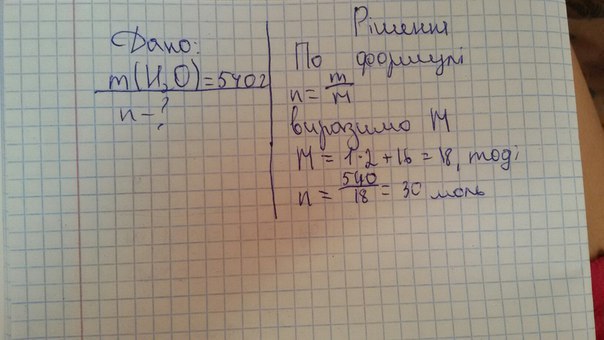 Дано:
m(H₂O)=540г
n-?
Рішення
По формулі
n=m/M
виразимо M
M=1·2+16=18, тоді
n=540/18=30 моль